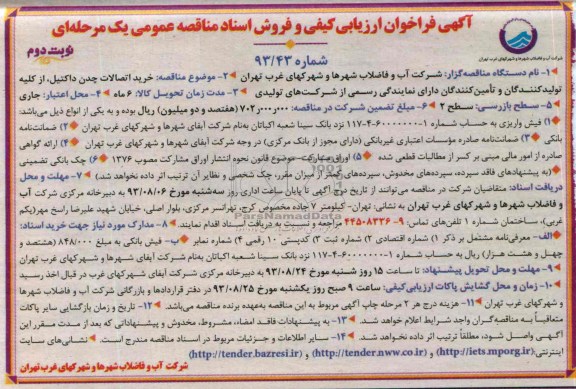 آگهی فراخوان ارزیابی کیفی و فروش اسناد مناقصه عمومی یک مرحله‌ای
شماره ۹۳/۴۳
نوبت دوم
شرکت آب و فاضلاب شهرها و شهرکهای غرب تهران
۱- نام دستگاه مناقصه‌گزار: شرکت آب و فاضلاب شهرها و شهرکهای غرب تهران ۲- موضوع مناقصه: خرید اتصالات چدن داکتیل، از کلیه
تولیدکنندگان و تأمین‌کنندگان دارای نمایندگی رسمی از شرکت‌های تولیدی ۳- مدت زمان تحویل کالا: ۶ ماه ۴- محل اعتبار: جاری
۵- سطح بازرسی: سطح ۲ ۶- مبلغ تضمین شرکت در مناقصه: ۷۰۲/۰۰۰/۰۰۰ ریال (هفتصد و دو میلیون) ریال بوده و به یکی از انواع ذیل می‌باشد:
۱) فیش واریزی به حساب شماره ۱-۶۰۰۰۰۰۰۰-۴-۱۱۷ نزد بانک سینا شعبه اکباتان به‌نام شرکت آبفای شهرها و شهرکهای غرب تهران ۲) ضمانت‌نامه
بانکی ۳) ضمانت‌نامه صادره مؤسسات اعتباری غیربانکی (دارای مجوز از بانک مرکزی) در وجه شرکت آبفای شهرها و شهرکهای غرب تهران ۴) ارائه گواهی
صادره از امور مالی مبنی بر کسر از مطالبات قطعی شده ۵) اوراق مشارکت موضوع قانون نحوه انتشار اوراق مشارکت مصوب ۱۳۷۶ ۶) چک بانکی تضمینی
(به پیشنهادهای فاقد سپرده، سپرده‌های مخدوش، سپرده‌های کمتر از میزان مقرر، چک شخصی و نظایر آن ترتیب اثر داده نخواهد شد) ۷- مهلت و محل
دریافت اسناد: متقاضیان شرکت در مناقصه می‌توانند از تاریخ درج آگهی تا پایان ساعت اداری روز سه‌شنبه مورخ ۹۳/۰۸/۰۶ به دبیرخانه مرکزی شرکت آب
و فاضلاب شهرها و شهرکهای غرب تهران به نشانی: تهران- کیلومتر ۷ جاده مخصوص کرج، تهرانسر مرکزی، بلوار اصلی، خیابان شهید علیرضا راسخ مهر(یکم
غربی)، ساختمان شماره ۱ تلفن‌های تماس: ۹- ۴۴۵۰۸۳۳۶ مراجعه و نسبت به دریافت اسناد اقدام نمایند. ۸- مدارک مورد نیاز جهت خرید اسناد:
الف- معرفی‌نامه مشتمل بر ذکر ۱) شماره اقتصادی ۲) شماره ثبت ۳) کدپستی ۱۰ رقمی ۴) شماره نمابر ب- فیش بانکی به مبلغ ۸۴۸/۰۰۰ (هشتصد و
چهل و هشت هزار) ریال به حساب شماره ۱-۶۰۰۰۰۰۰۰-۴-۱۱۷ نزد بانک سینا شعبه اکباتان به‌نام شرکت آبفای شهرها و شهرکهای غرب تهران
۹- مهلت و محل تحویل پیشنهاد: تا ساعت ۱۵ روز شنبه مورخ ۹۳/۰۸/۲۴ به دبیرخانه مرکزی شرکت آبفای شهرکهای غرب تهران در قبال اخذ رسید
۱۰- زمان و محل گشایش پاکات ارزیابی کیفی: ساعت ۹ صبح روز یکشنبه مورخ ۹۳/۰۸/۲۵ در دفتر قراردادها و بازرگانی شرکت آب و فاضلاب شهرها
و شهرکهای غرب تهران ۱۱- هزینه درج هر ۲ مرحله چاپ آگهی مربوط به این مناقصه به‌عهده برنده مناقصه می‌باشد. ۱۲- تاریخ و زمان بازگشایی سایر پاکات
متعاقباً به مناقصه‌گران واجد شرایط اعلام خواهد شد. ۱۳- به پیشنهادات فاقد امضاء، مشروط، مخدوش و پیشنهاداتی که بعد از مدت مقرر این
آگهی واصل شود، مطلقاً ترتیب اثر داده نخواهد شد. ۱۴- سایر اطلاعات و جزئیات مربوط در اسناد مناقصه مندرج است. نشانی‌های سایت
اینترنتی: (http://iets.mporg.ir) و (http://tender.nww.co.ir) و (http://tender.bazresi.ir)
شرکت آب و فاضلاب شهرها و شهرکهای غرب تهران
ParsNamadData